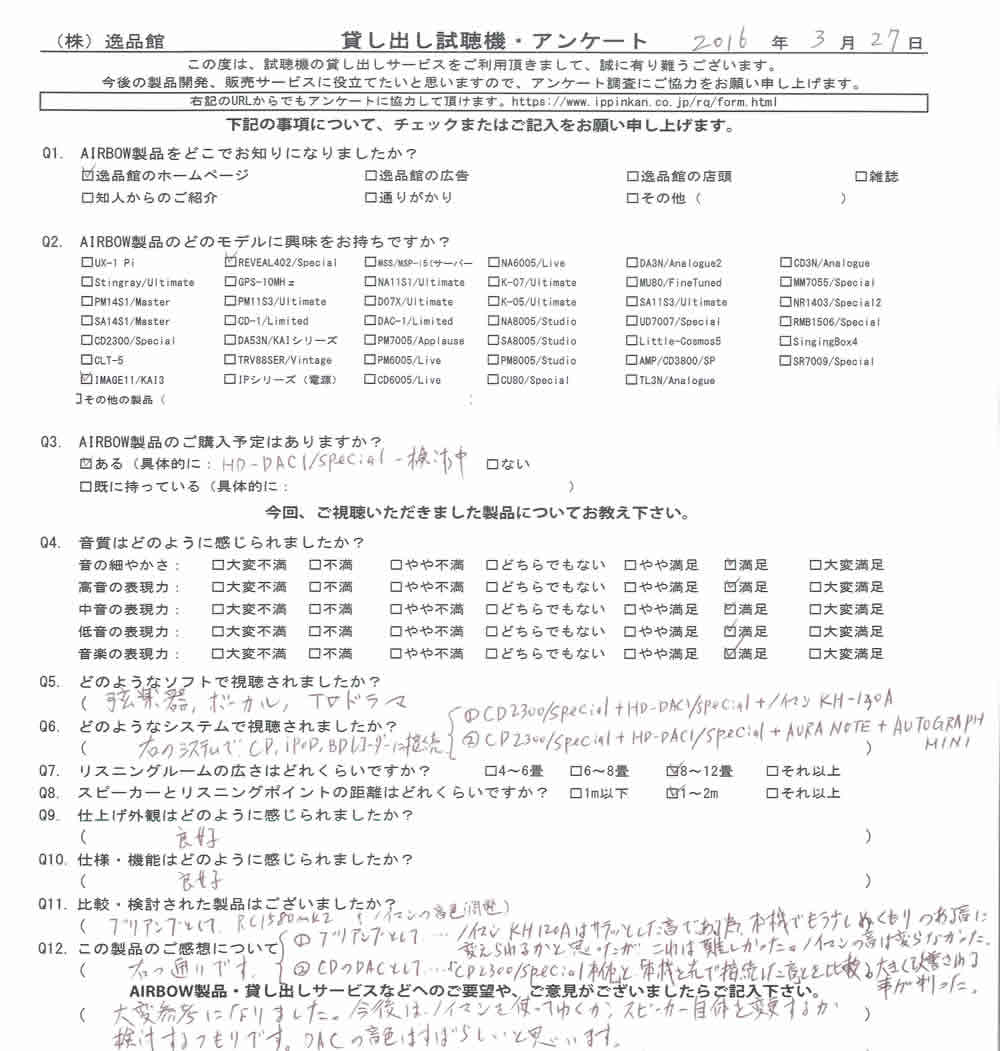 (株) 逸品館 貸し出し試聴機・アンケート 2016 年 3 月 27 日
この度は、試聴機の貸し出しサービスをご利用頂きまして、誠に有り難うございます。
今後の製品開発、販売サービスに役立てたいと思いますので、アンケート調査にご協力をお願い申し上げます。
右記のURLからでもアンケートに協力して頂けます。https://www.ippinkan.co.jp/rq/form.html
下記の事項について、チェックまたはご記入をお願い申し上げます。
Q1. AIRBOW製品をどこでお知りになりましたか？
☑逸品館のホームページ □逸品館の広告 □逸品館の店頭 □雑誌
□知人からのご紹介 □通りがかり □その他（ ）
Q2. AIRBOW製品のどのモデルに興味をお持ちですか？
□UX-1 Pi ☑REVEAL402/Special □MSS/MSP-15(サーバー □NA6005/Live □DA3N/Analogue2 □CD3N/Analogue
□Stingray/Ultimate □GPS-10MHz □NA11S1/Ultimate □K-07/Ultimate □MU80/FineTuned □MM7055/Special
□PM14S1/Master □PM11S3/Ultimate □D07X/Ultimate □K-05/Ultimate □SA11S3/Ultimate □NR1403/Special2
□SA14S1/Master □CD-1/Limited □DAC-1/Limited □NA8005/Studio □UD7007/Special □RMB1506/Special
□CD2300/Special □DA53N/KAIシリーズ □PM7005/Applause □SA8005/Studio □Little-Cosmos5 □SingingBox4
□CLT-5 □TRV88SER/Vintage □PM6005/Live □PM8005/Studio □AMP/CD3800/SP □SR7009/Special
☑IMAGE11/KAI3 □IPシリーズ（電源） □CD6005/Live □CU80/Special □TL3N/Analogue
□その他の製品（
Q3. AIRBOW製品のご購入予定はありますか？
☑ある（具体的に： HD-DAC1/special -検討中 □ない
□既に持っている（具体的に： ）
今回、ご視聴いただきました製品についてお教え下さい。
Q4. 音質はどのように感じられましたか？
音の細やかさ： □大変不満 □不満 □やや不満 □どちらでもない □やや満足 ☑満足 □大変満足
高音の表現力： □大変不満 □不満 □やや不満 □どちらでもない □やや満足 ☑満足 □大変満足
中音の表現力： □大変不満 □不満 □やや不満 □どちらでもない □やや満足 ☑満足 □大変満足
低音の表現力： □大変不満 □不満 □やや不満 □どちらでもない □やや満足 ☑満足 □大変満足
音楽の表現力： □大変不満 □不満 □やや不満 □どちらでもない □やや満足 ☑満足 □大変満足
Q5. どのようなソフトで視聴されましたか？
( 弦楽器, ボーカル, TVドラマ
①CD2300/special+HD-DAC1/special+ノイマン KH-120A
Q6. どのようなシステムで視聴されましたか？
( 右のシステムで CD, iPod, BDレコーダーに接続 )
②CD2300/special+HD-DAC1/special+AURA NOTE+AUTOGRAPH MINI
Q7. リスニングルームの広さはどれくらいですか？ □4～6畳 □6～8畳 ☑8～12畳 □それ以上
Q8. スピーカーとリスニングポイントの距離はどれくらいですか？ □1m以下 ☑1～2m □それ以上
Q9. 仕上げ外観はどのように感じられましたか？
( 良好 )
Q10. 仕様・機能はどのように感じられましたか？
( 良好 )
Q11. 比較・検討された製品はございましたか？
( プリアンプとして, RC1580mk2 (ノイマンの音色調整)
Q12. この製品のご感想について
( 右の通りです。
①プリアンプとして… ノイマン KH120Aはサラッとした音である為, 本機でもう少しぬくもりのある音に
変えられるかと思ったが これは難しかった。ノイマンの音は変らなかった。
②CDのDACとして…CD2300/special 本体と 本機と光で接続した音とを比較 大きく改善される
事が判った。
AIRBOW製品・貸し出しサービスなどへのご要望や、ご意見がございましたらご記入下さい。
( 大変参考になりました。今後は、ノイマンを使ってゆくか, スピーカー自体を変更するか
検討するつもりです。DACの音色はすばらしいと思います。